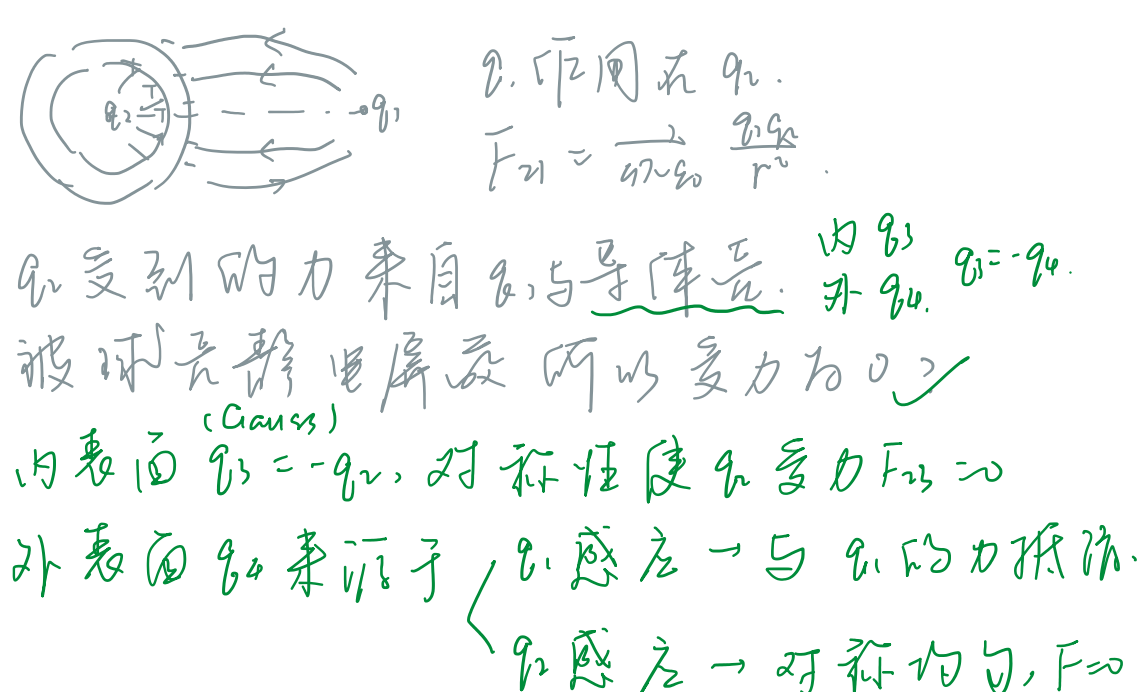 q₂ q₁
q₁作用在q₂.
F₂₁ = 1/4πε₀ q₁q₂/r² .
q₂受到的力来自q₁与导体壳.
内q₃
外q₄.
q₃=-q₄.
被球壳静电屏蔽所以受力为0?
(Gauss)
内表面q₃=-q₂,对称性使q₂受力F₂₃=0
外表面q₄来源于
q₁感应→与q₁的力抵消.
q₂感应→对称均匀,F=0